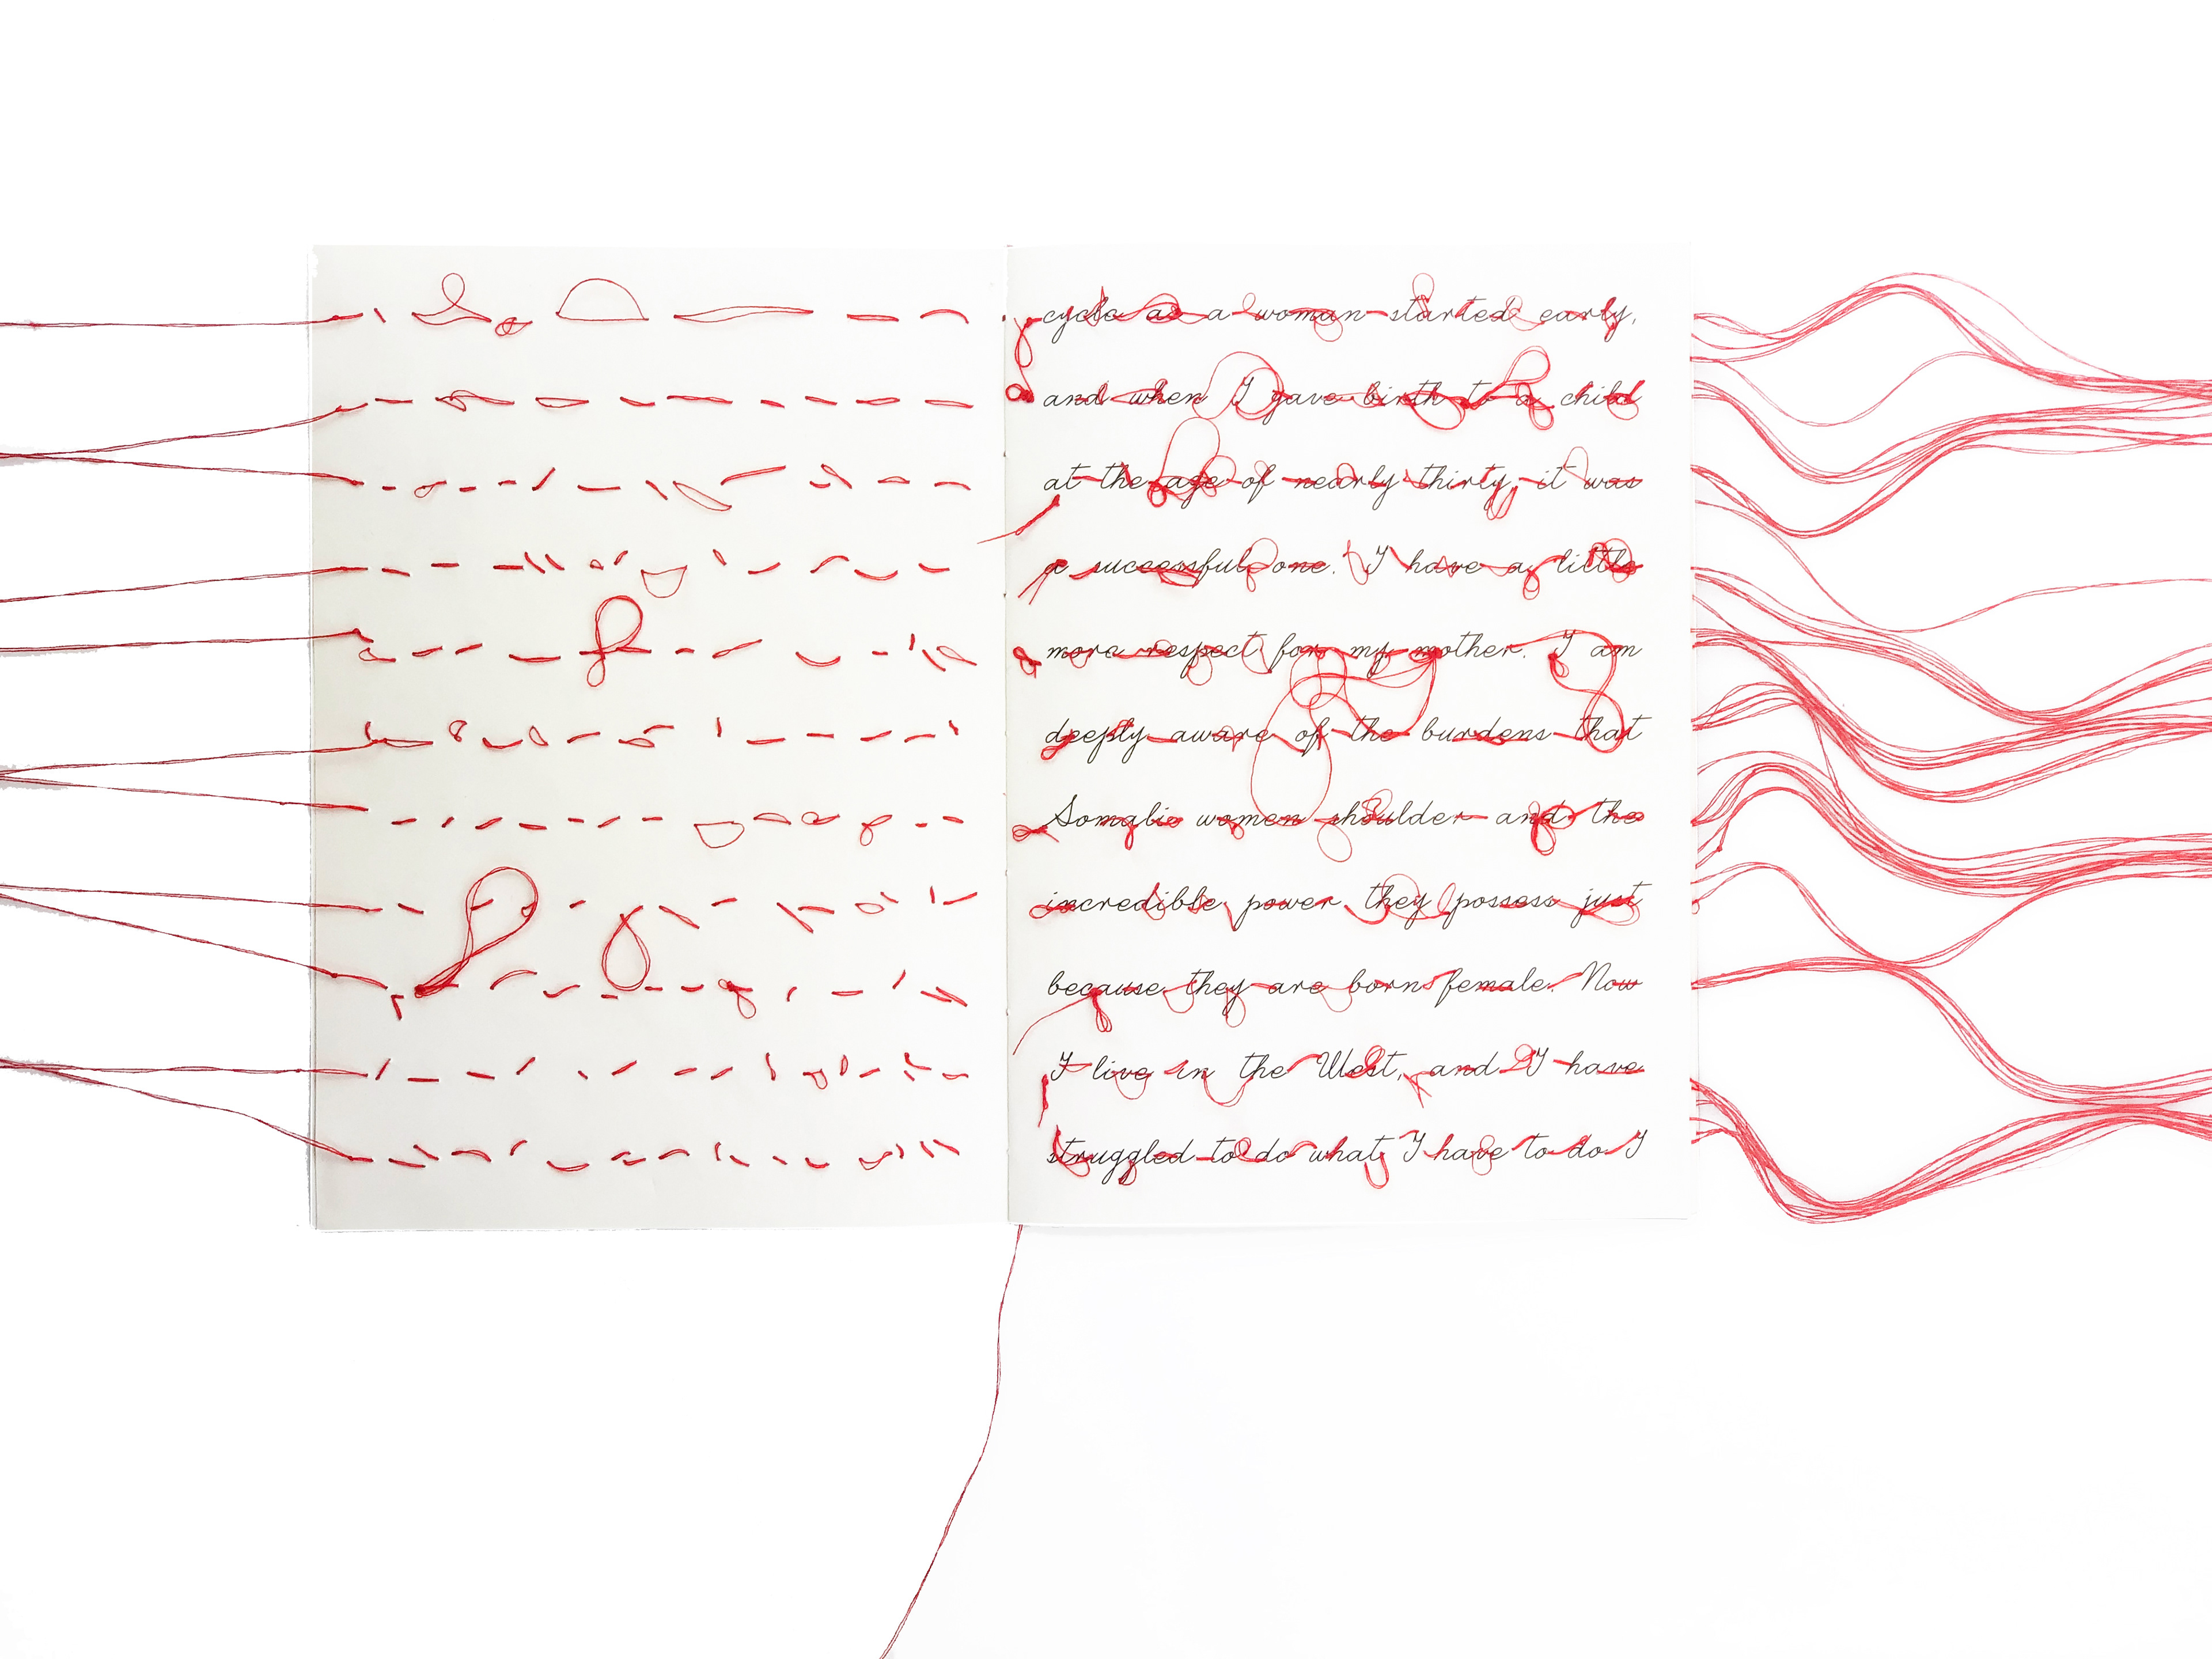 cycle as a woman started early,
and when I gave birth to a child
at the age of nearly thirty, it was
a successful one. I have a little
more respect for my mother. I am
deeply aware of the burdens that
Somalie women shoulder and the
incredible power they possess just
because they are born female. Now
I live in the West, and I have
struggled to do what I have to do I